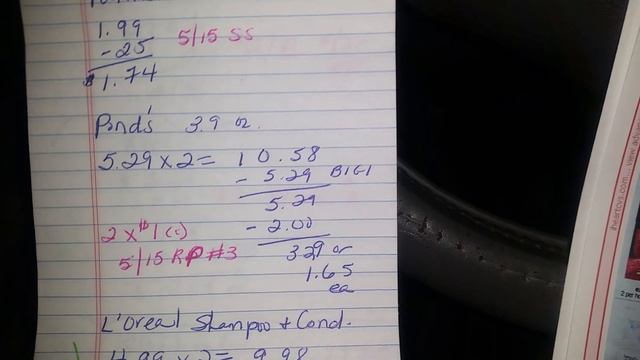 1.99
- 25 5/15 SS
$1.74
Pond's 3.9 oz.
5.29 x 2 = 10.58
- 5.29 B1G1
5.29
- 2.00
2 x $1 (c)
5/15 RP #3
3.29 or
1.65
ea
L'Oreal Shampoo + Cond.
4.99 x 2 = 9.98